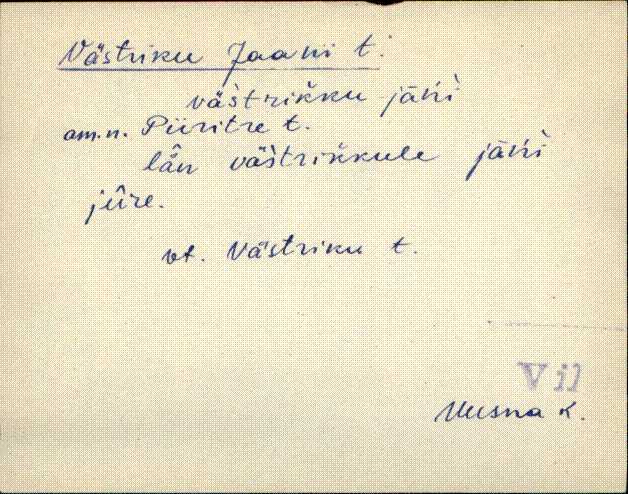 Västriku Jaani t.
västrikku jāni
am. n. Piiritre t.
län västrikkule jāni
jûre.
vt. Västriku t.
Vil
Uusna k.